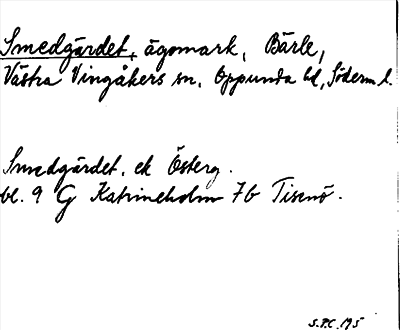 Smedgärdet, ägomark, Bärle,
Västra Vingåkers sn, Oppunda hd, Söderm l.
Smedgärdet, ek Österg.
bl. 9 G Katrineholm 7b Tisenö.